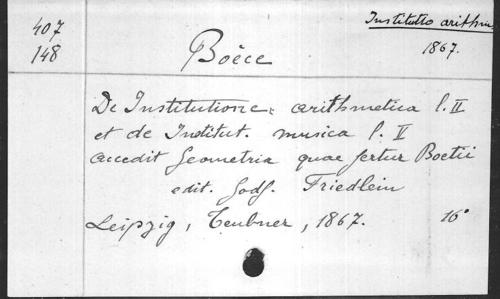 407
148
Institutio arithm
1867.
Boèce
De Institutione arithmetica l. II
et de Institut. musica l. V
accedit Geometria quae fertur Boetii
edit. Godf. Friedlein
Leipzig, Teubner, 1867. 16°